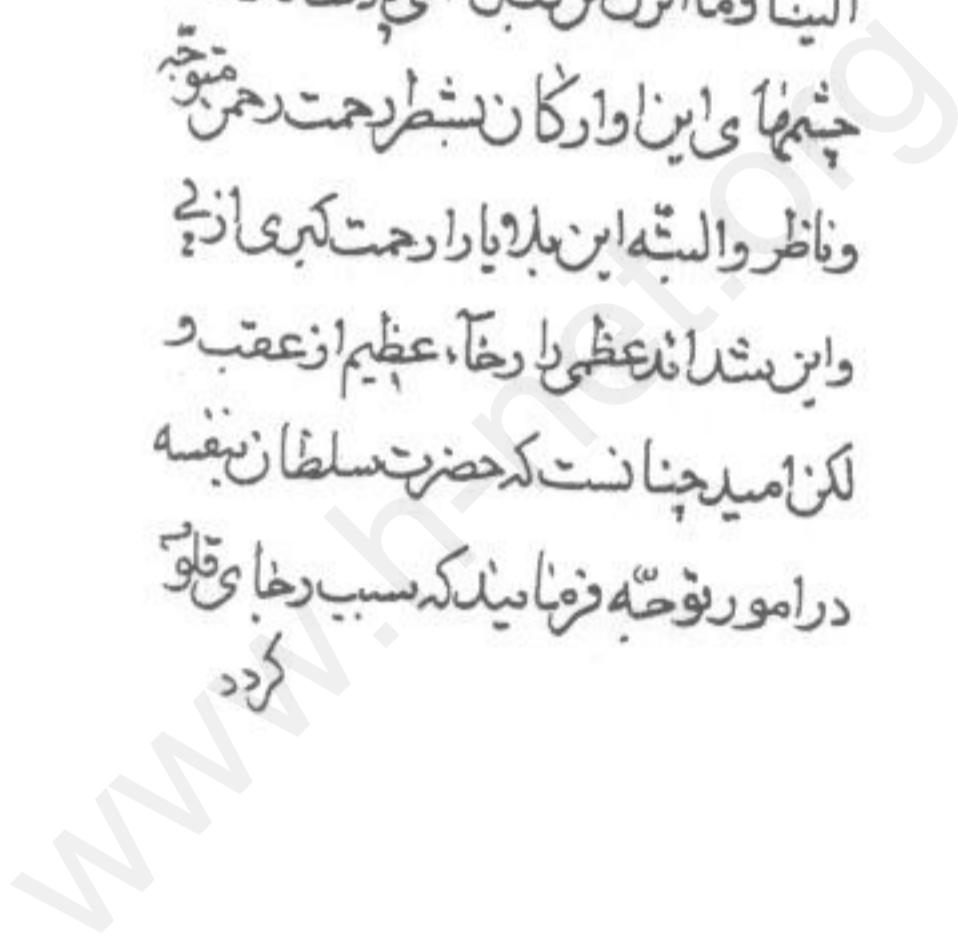 الینا وما انزل من قبل
چشمهای این اوارکان بشطر رحمت رحمن متوجّه
وناظر والبتّه این بلایا را رحمت کبری از پی
واین شدائد عظمی را رخآء عظیم از عقب و
لکن امید چنانست که حضرت سلطان بنفسه
در امور توجّه فرمایند که سبب رخای قلوب
کردد
www.h-net.org